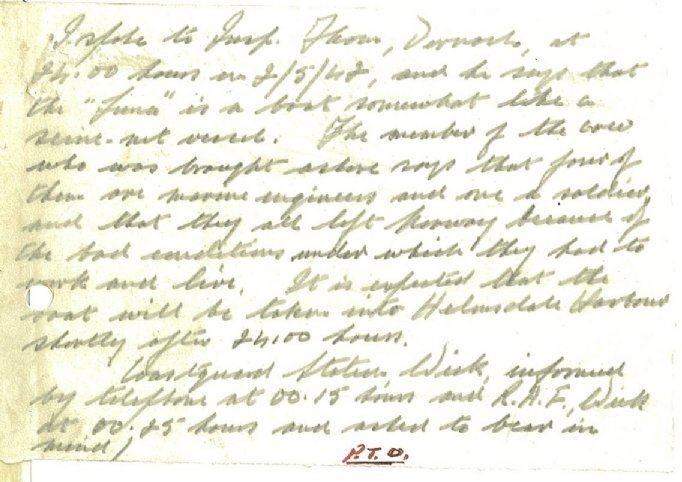 I spoke to Insp. Thom, Dornoch, at
24.00 hours on 2/5/42, and he says that
the "Luna" is a boat somewhat like a
seine-net vessel. The member of the crew
who was brought ashore says that four of
them are marine engineers and one a soldier,
and that they all left Norway because of
the bad conditions under which they had to
work and live. It is expected that the
boat will be taken into Helmsdale Harbour
shortly after 24.00 hours.
Coastguard Station Wick, informed
by telephone at 00.15 hours and R.A.F., Wick
at 00.25 hours and asked to bear in
mind,
P.T.O.